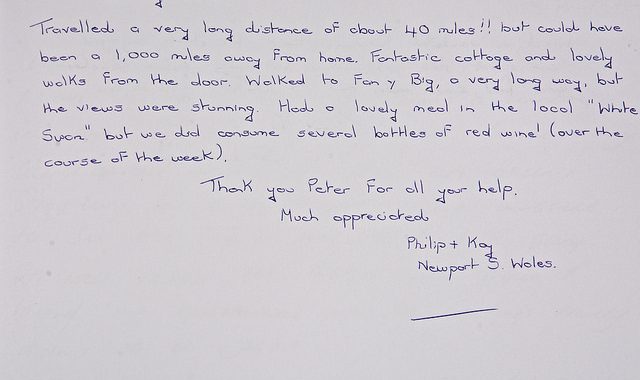 Travelled a very long distance of about 40 miles!! but could have
been a 1,000 miles away from home. Fantastic cottage and lovely
walks from the door. Walked to Fan y Big, a very long way, but
the views were stunning. Had a lovely meal in the local "White
Swan" but we did consume several bottles of red wine! (over the
course of the week).
Thank you Peter for all your help.
Much appreciated
Philip + Kay
Newport S. Wales.